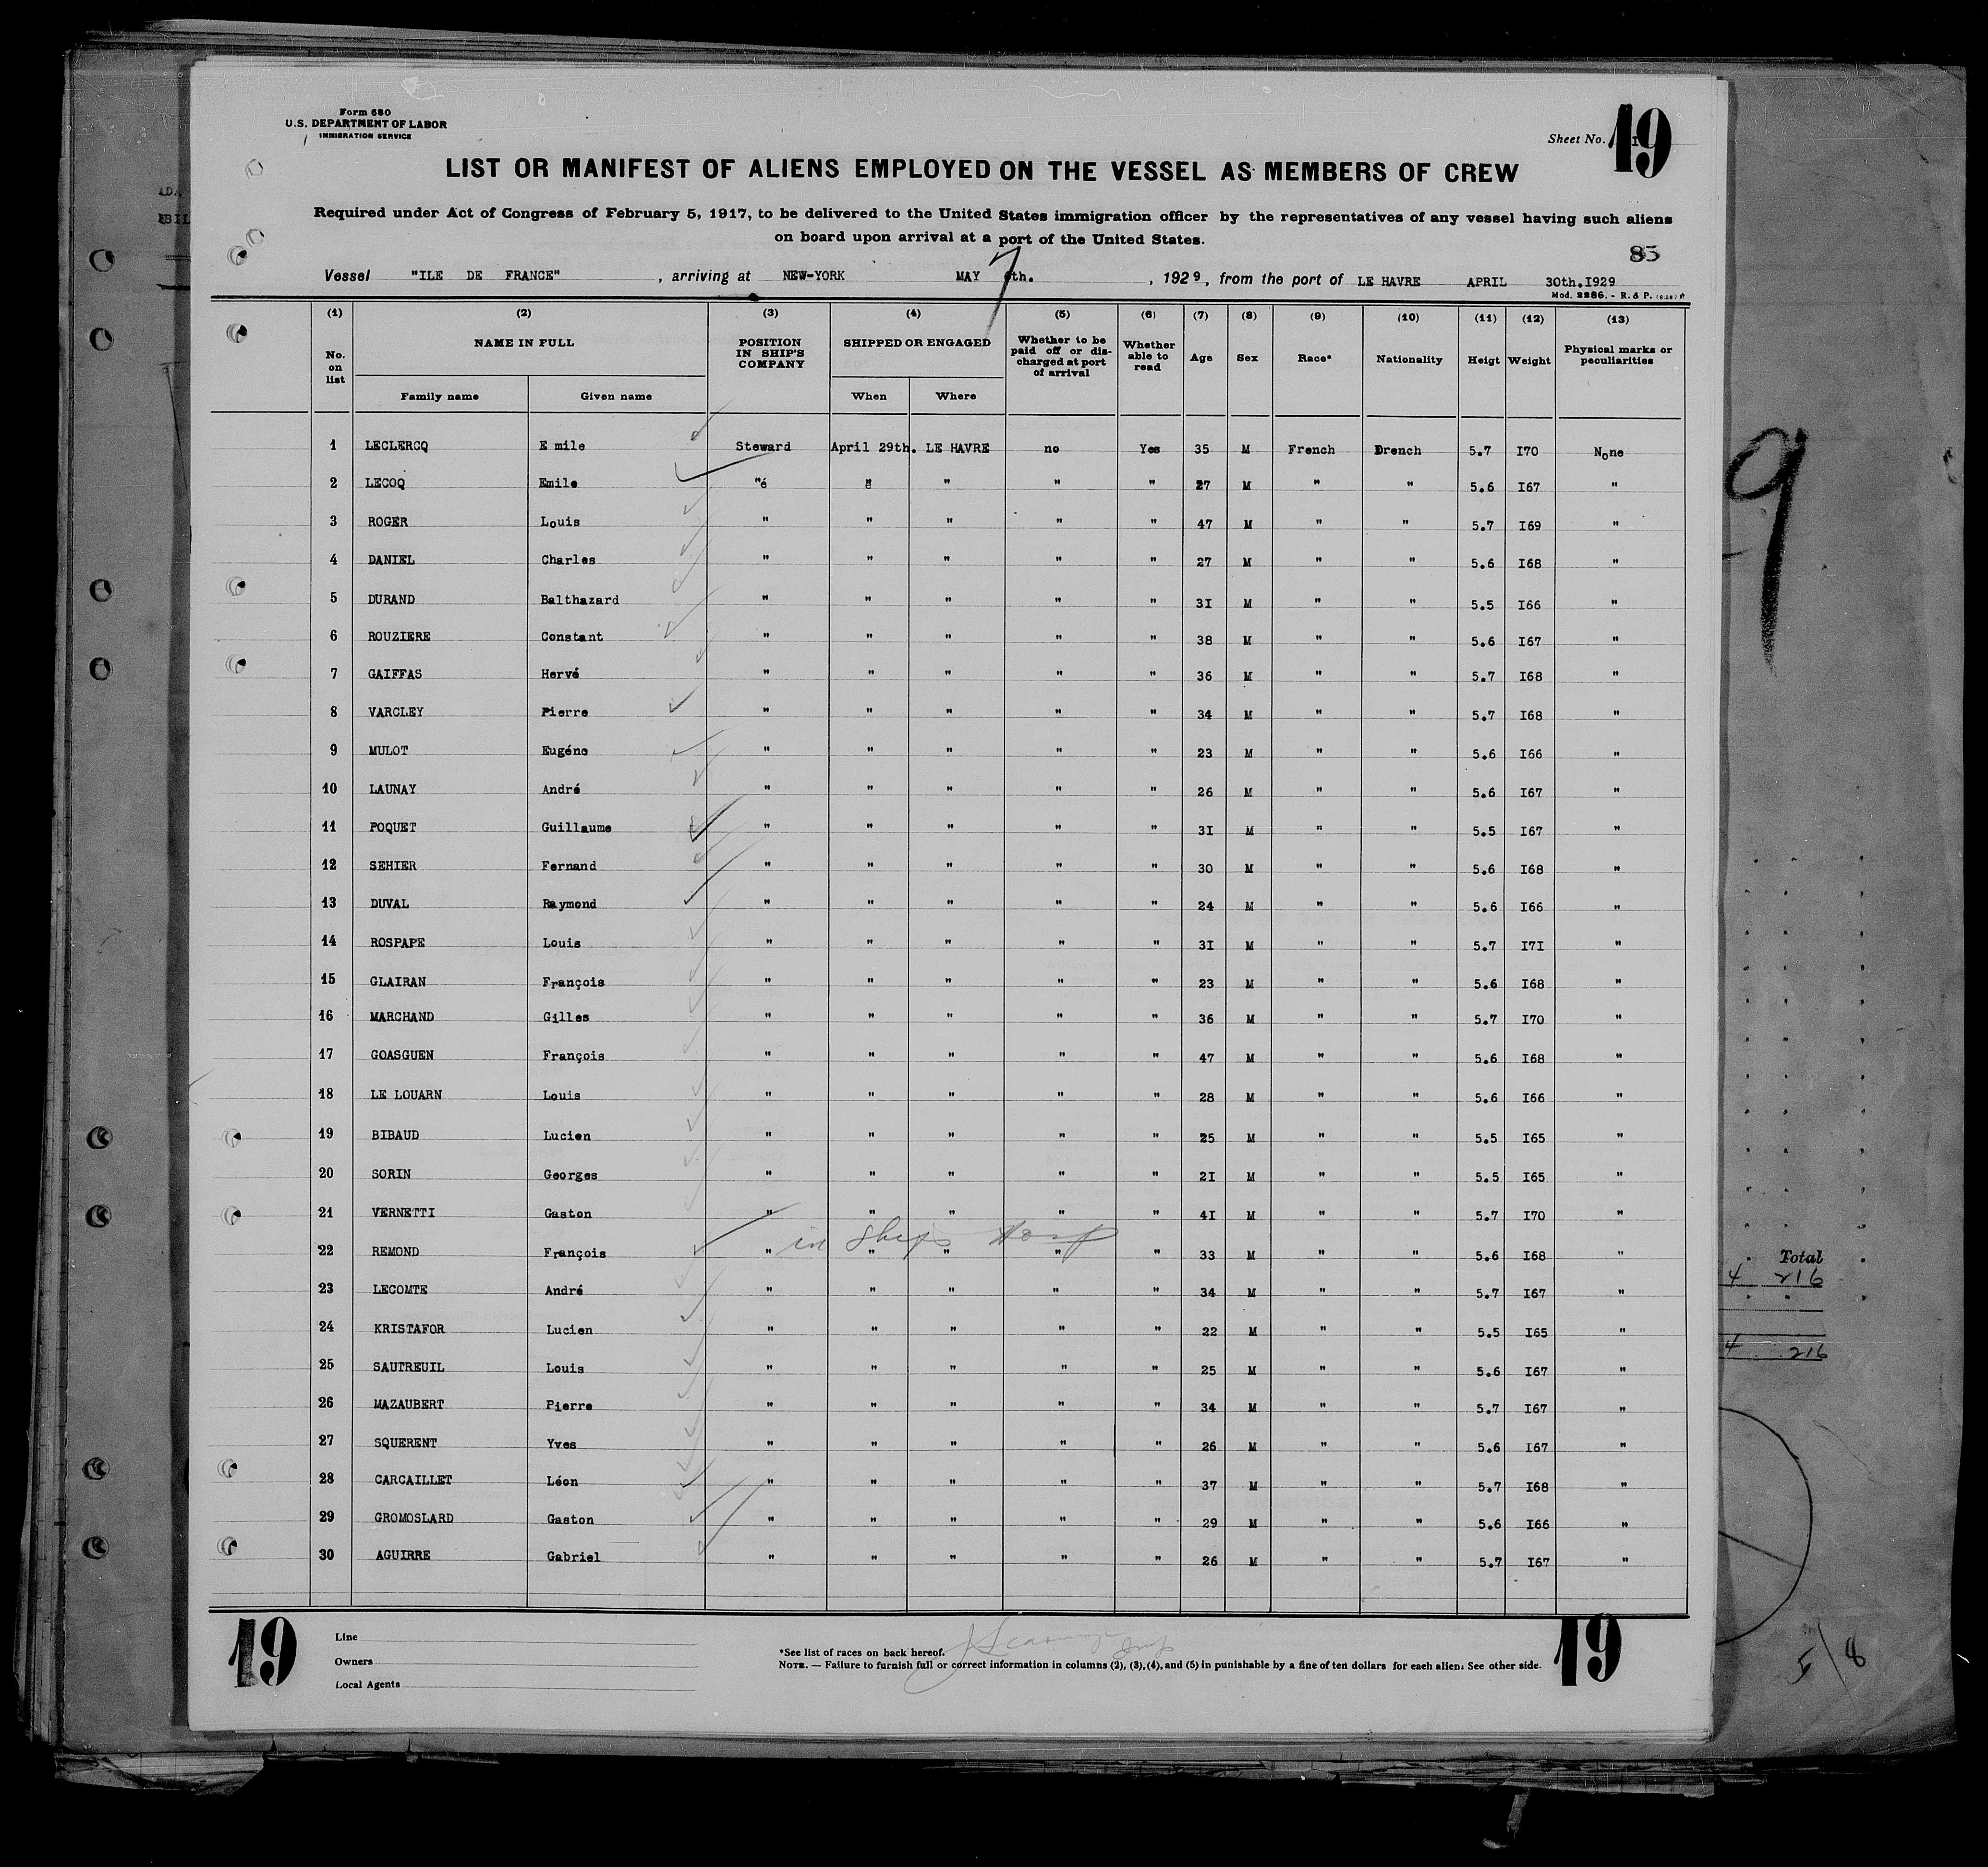 Form 680
U.S. DEPARTMENT OF LABOR
IMMIGRATION SERVICE
Sheet No. 19
LIST OR MANIFEST OF ALIENS EMPLOYED ON THE VESSEL AS MEMBERS OF CREW
Required under Act of Congress of February 5, 1917, to be delivered to the United States immigration officer by the representatives of any vessel having such aliens
on board upon arrival at a port of the United States.
85
Vessel "ILE DE FRANCE" , arriving at NEW-YORK MAY 7 th. , 1929, from the port of LE HAVRE APRIL 30th.I929
Mod. 2286. - R. & P.
(1) (2) (3) (4) (5) (6) (7) (8) (9) (10) (11) (12) (13)
No. on list NAME IN FULL Family name Given name POSITION IN SHIP'S COMPANY SHIPPED OR ENGAGED When Where Whether to be paid off or discharged at port of arrival Whether able to read Age Sex Race* Nationality Heigt Weight Physical marks or peculiarities
1 LECLERCQ E mile Steward April 29th. LE HAVRE no Yes 35 M French Drench 5.7 I70 None
2 LECOQ Emile "é " " " " 27 M " " 5.6 I67 "
3 ROGER Louis " " " " " 47 M " " 5.7 I69 "
4 DANIEL Charles " " " " " 27 M " " 5.6 I68 "
5 DURAND Balthazard " " " " " 3I M " " 5.5 I66 "
6 ROUZIERE Constant " " " " " 38 M " " 5.6 I67 "
7 GAIFFAS Hervé " " " " " 36 M " " 5.7 I68 "
8 VARCLEY Pierre " " " " " 34 M " " 5.7 I68 "
9 MULOT Eugéne " " " " " 23 M " " 5.6 I66 "
10 LAUNAY André " " " " " 26 M " " 5.6 I67 "
11 POQUET Guillaume " " " " " 3I M " " 5.5 I67 "
12 SEHIER Fernand " " " " " 30 M " " 5.6 I68 "
13 DUVAL Raymond " " " " " 24 M " " 5.6 I66 "
14 ROSPAPE Louis " " " " " 3I M " " 5.7 I7I "
15 GLAIRAN François " " " " " 23 M " " 5.6 I68 "
16 MARCHAND Gilles " " " " " 36 M " " 5.7 I70 "
17 GOASGUEN François " " " " " 47 M " " 5.6 I68 "
18 LE LOUARN Louis " " " " " 28 M " " 5.6 I66 "
19 BIBAUD Lucien " " " " " 25 M " " 5.5 I65 "
20 SORIN Georges " " " " " 2I M " " 5.5 I65 "
21 VERNETTI Gaston " " " " " 4I M " " 5.7 I70 "
in Ships Hosp
22 REMOND François " " " " " 33 M " " 5.6 I68 "
23 LECOMTE André " " " " " 34 M " " 5.7 I67 "
24 KRISTAFOR Lucien " " " " " 22 M " " 5.5 I65 "
25 SAUTREUIL Louis " " " " " 25 M " " 5.6 I67 "
26 MAZAUBERT Pierre " " " " " 34 M " " 5.7 I67 "
27 SQUERENT Yves " " " " " 26 M " " 5.6 I67 "
28 CARCAILLET Léon " " " " " 37 M " " 5.7 I68 "
29 GROMOSLARD Gaston " " " " " 29 M " " 5.6 I66 "
30 AGUIRRE Gabriel " " " " " 26 M " " 5.7 I67 "
19 19
Line
Owners
Local Agents
*See list of races on back hereof.
NOTE. — Failure to furnish full or correct information in columns (2), (3), (4), and (5) in punishable by a fine of ten dollars for each alien. See other side.
9
Total
4 216
4 216
5/8